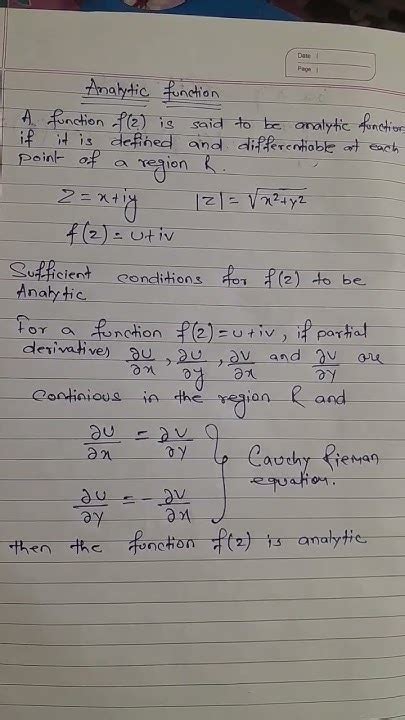 Date |
Page |
Analytic function
A function f(z) is said to be analytic function
if it is defined and differentiable at each
point of a region R.
Z = x+iy |z| = √x²+y²
f(z) = u+iv
Sufficient conditions for f(z) to be
Analytic
For a function f(z) = u+iv, if partial
derivatives ∂u/∂x, ∂u/∂y, ∂v/∂x and ∂v/∂y are
continious in the region R and
∂u/∂x = ∂v/∂y
Cauchy Rieman
equation.
∂u/∂y = -∂v/∂x
then the function f(z) is analytic